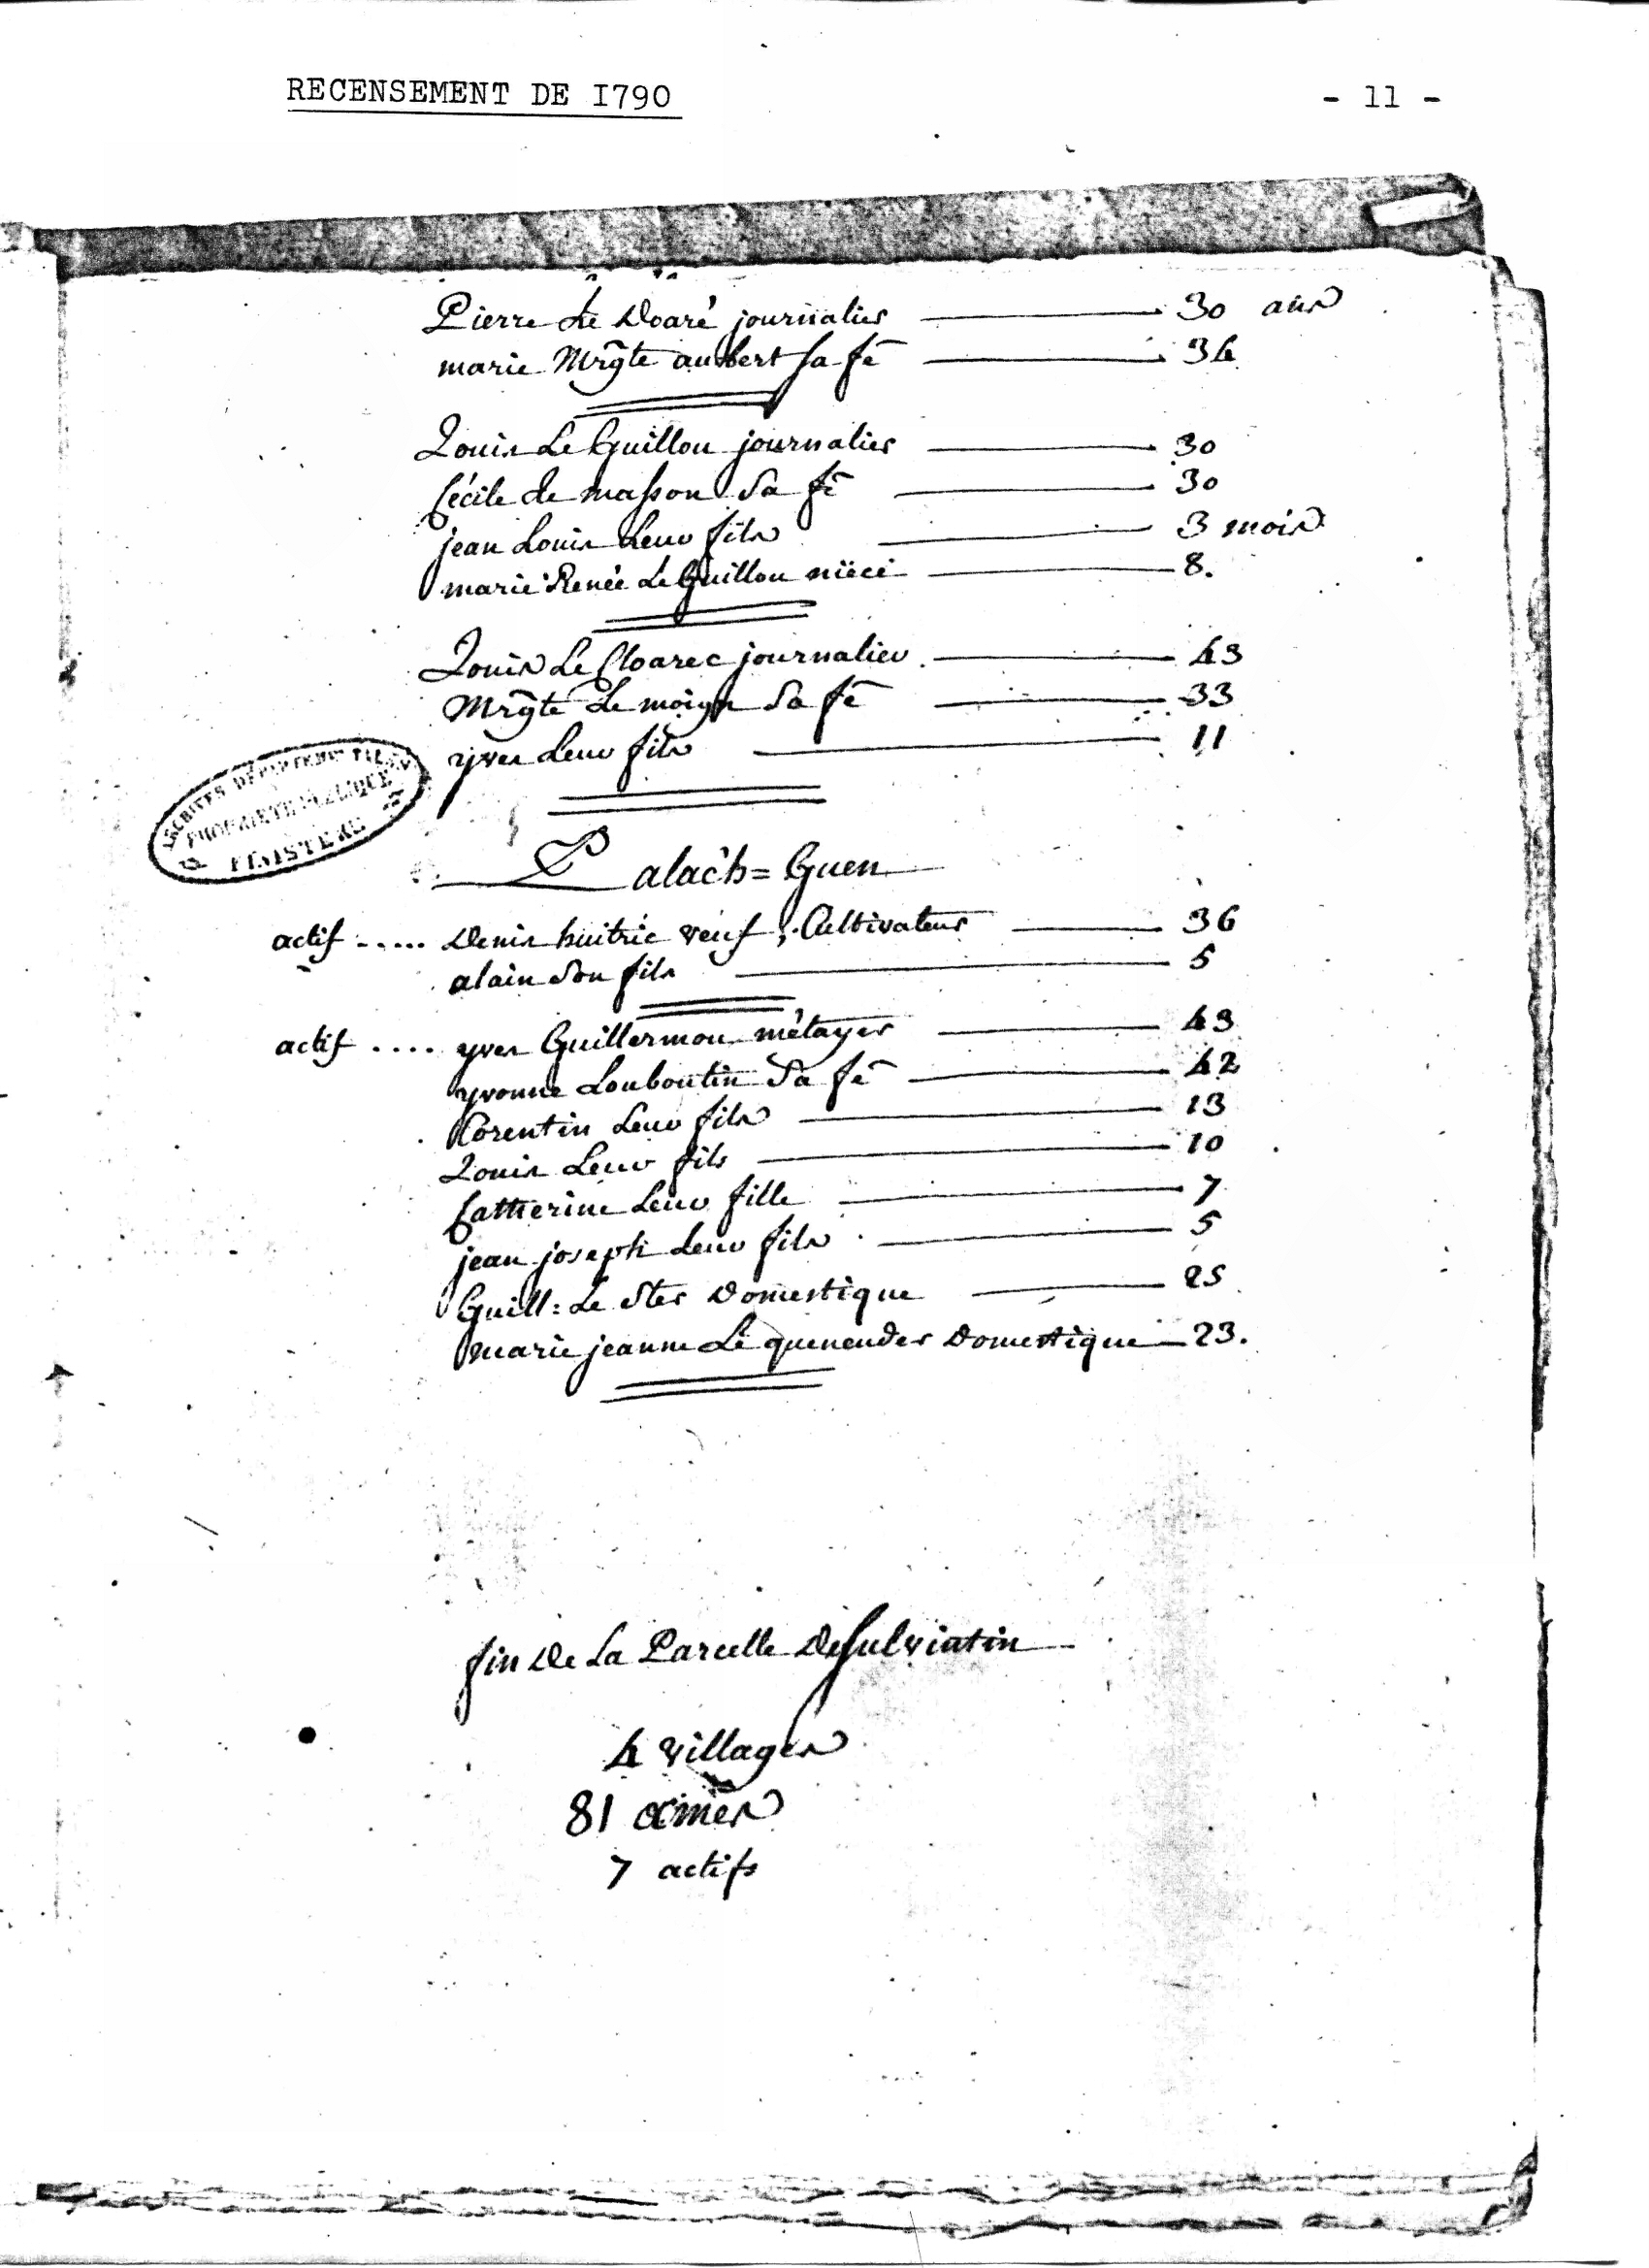 RECENSEMENT DE I790
- 11 -
Pierre Le Doaré journalier 30 ans
marie Mrgte aubert sa fe 34
Louis Le Guillou journalier 30
Cécile Le masson Sa fe 30
jean Louis Leur fils 3 mois
marie Renée Le Guillou niéce 8.
Louis Le Cloarec journalier 43
Mrgte Le moign Sa fe 33
yves Leur fils 11
ARCHIVES DÉPARTEMENTALES
PROPRIETE PUBLIQUE
FINISTERE
Palac'h=Guen
actif ..... Denis huitric veuf, Cultivateur 36
alain Son fils 5
actif .... yves Guillermou métayer 43
yvonne Louboutin Sa fe 42
Corentin Leur fils 13
Louis Leur fils 10
Catherine Leur fille 7
jean joseph Leur fils 5
Guill: Le Ster Domestique 25
marie jeanne Le quenender Domestique 23.
fin De La Parcelle De Sulvintin
4 villages
81 âmes
7 actifs